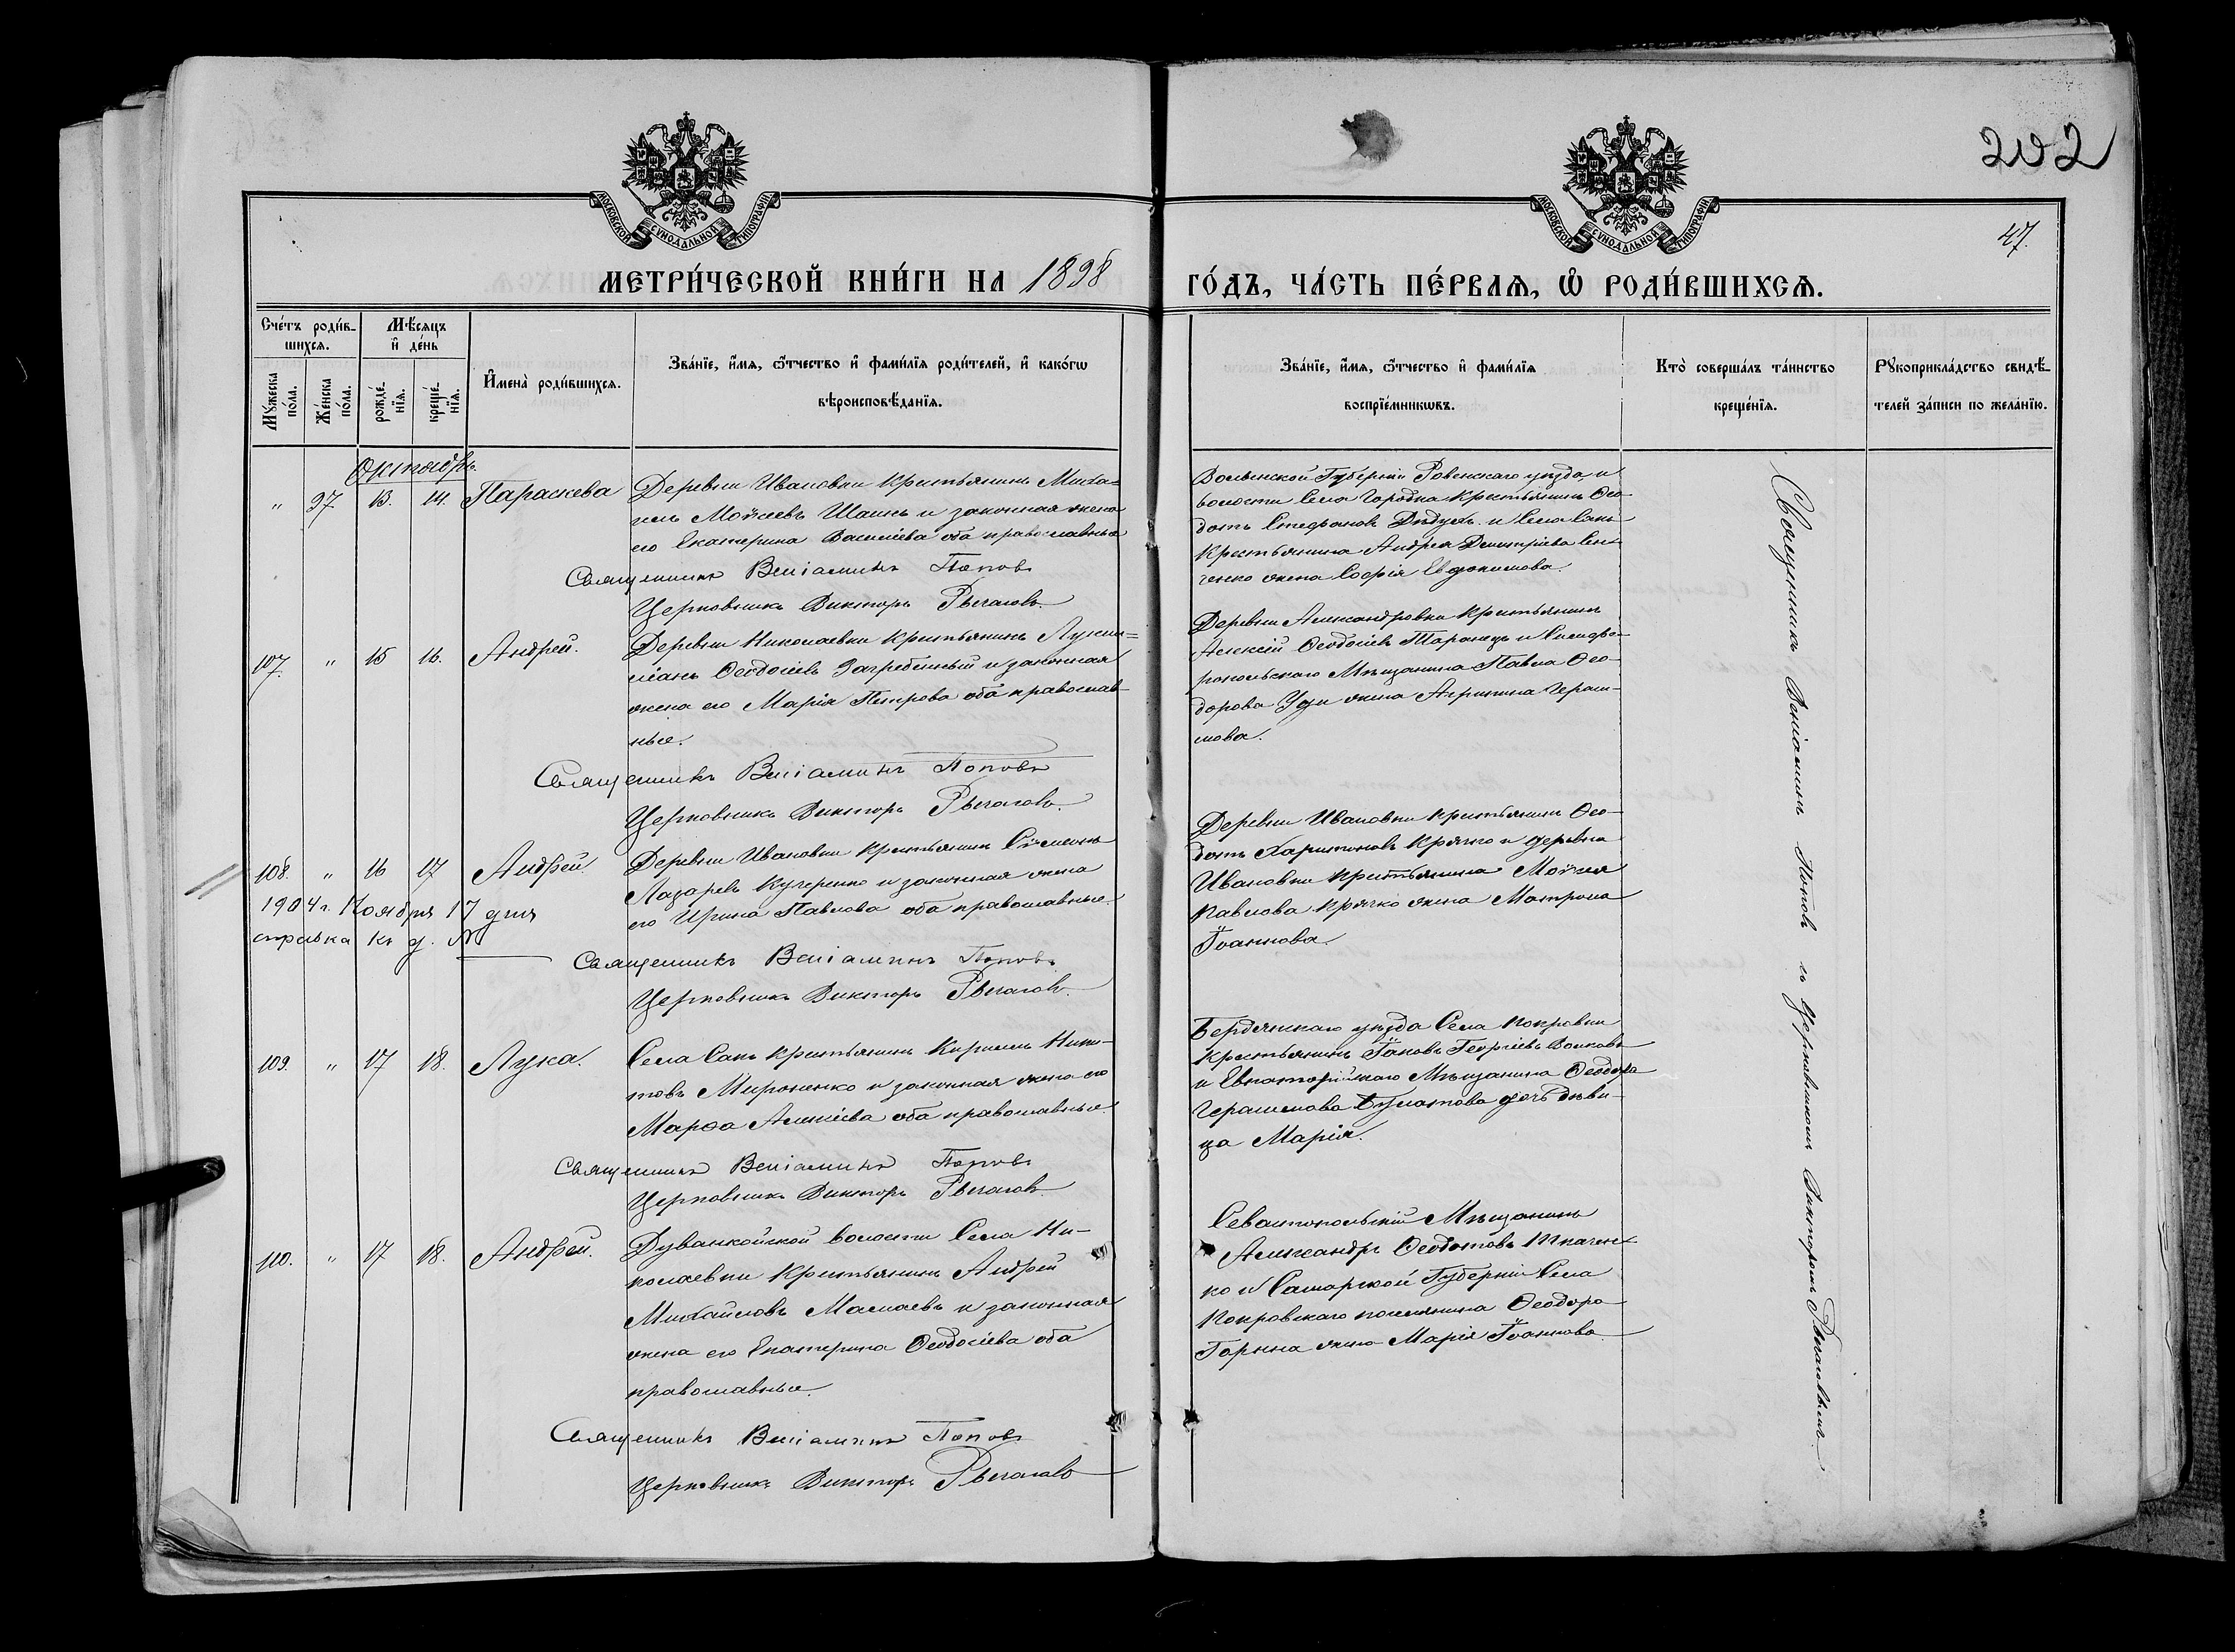 202
47.
МОСКОВСКОЙ СѴНОДАЛЬНОЙ ТИПОГРАФІИ
МОСКОВСКОЙ СѴНОДАЛЬНОЙ ТИПОГРАФІИ
МЕТРИ́ЧЕСКОЙ КНИ́ГИ НА 1898
ГО́ДЪ, ЧА́СТЬ ПЕ́РВАѦ, Ѡ҆ РОДИ́ВШИХСѦ.
Сче́тъ роди́в-
шихсѧ.
Мꙋ́жеска по́ла.
Же́нска по́ла.
Мѣ́сѧцъ
и҆ де́нь
рожде́-
нїѧ.
креще́-
нїѧ.
И҆мена̀ роди́вшихсѧ.
Зва́нїе, и҆́мѧ, ѻ҆́тчество и҆ фами́лїѧ роди́телей, и҆ како́гѡ
вѣроисповѣ́данїѧ.
Зва́нїе, и҆́мѧ, ѻ҆́тчество и҆ фами́лїѧ
воспрїе́мникѡвъ.
Кто̀ соверша́лъ та́инство
креще́нїѧ.
Рꙋкоприкла́дство свидѣ́-
телей за́писи по жела́нїю.
Октябрь.
" 97 13. 14. Параскева
Деревни Ивановки крестьянинъ Миха-
илъ Моѵсеевъ и законная жена
его Екатерина Василіева оба православные
Священникъ Веніаминъ Поповъ
Церковникъ Викторъ Рычаговъ.
Волынской Губерніи Ровенскаго уѣзда и
волости Села Городка крестьянинъ Ѳео-
дотъ Стефановъ и Села Сакъ
крестьянина Андрея Димитріева Сен-
ченко жена Софія Евдокимова.
107. " 15 16. Андрей.
Деревни Николаевки крестьянинъ Луки-
ліанъ Ѳеодосіевъ Загребельный и законная
жена его Марія Петрова оба православ-
ные.
Священникъ Веніаминъ Поповъ
Церковникъ Викторъ Рычаговъ.
Деревни Александровки крестьянинъ
Алексій Ѳеодосіевъ Таранецъ и Симферо-
польскаго Мѣщанина Павла Ѳео-
дорова жена Агрипина Гераси-
мова.
108. " 16 17 Андрей.
Деревни Ивановки крестьянинъ Сѵмеонъ
Лазаревъ Кучеренко и законная жена
его Ирина Павлова оба православные.
1904 г. Ноября 17 дня
справка къ д. №
Священникъ Веніаминъ Поповъ
Церковникъ Викторъ Рычаговъ.
Деревни Ивановки крестьянинъ Ѳео-
дотъ Харитоновъ Крячко и деревни
Ивановки крестьянина Моѵсея
Павлова Крячко жена Матрона
Іоаннова.
109. " 17 18. Лука.
Села Сакъ крестьянинъ Кириллъ Ники-
товъ Мироненко и законная жена его
Марѳа Алексіева оба православные
Священникъ Веніаминъ Поповъ
Церковникъ Викторъ Рычаговъ.
Бердянскаго уѣзда Села Покровки
крестьянинъ Іаковъ Георгіевъ Волковъ
и Евпаторійскаго Мѣщанина Ѳеодора
Герасимова Булатова дочь дѣви-
ца Марія.
110. " 17 18. Андрей.
Дуванкойской волости Села Ни-
колаевки крестьянинъ Андрей
Михайловъ Малаевъ и законная
жена его Екатерина Ѳеодосіева оба
православные.
Священникъ Веніаминъ Поповъ
Церковникъ Викторъ Рычаговъ
Севастопольскій Мѣщанинъ
Александръ Ѳеодотовъ Ткачен-
ко и Самарской Губерніи Села
Покровскаго поселянина Ѳеодора
Горина жена Марія Іоаннова.
Священникъ Веніаминъ Поповъ съ Церковникомъ Викторомъ Рычаговымъ